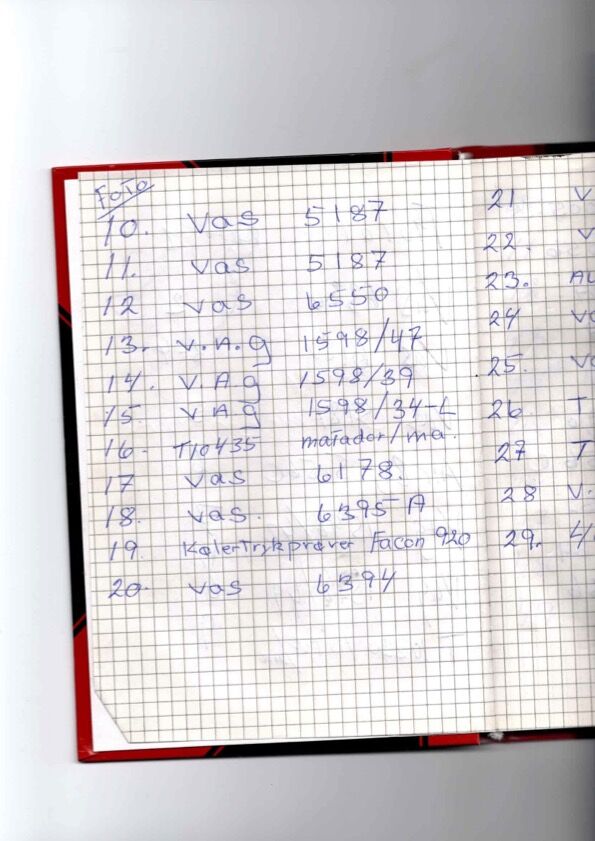 Foto
10. Vas 5187
11. Vas 5187
12 Vas 6550
13. V.A.g 1598/47
14. V.A.g 1598/39
15. VAg 1598/34-L
16. T10435 matador/ma.
17 Vas 6178.
18. Vas. 6395 A
19. Kølertrykprøver Facon 920
20. Vas 6394
21 V
22. V
23. AU
24 Vo
25. Vo
26 T
27 T
28 V.
29. 4/